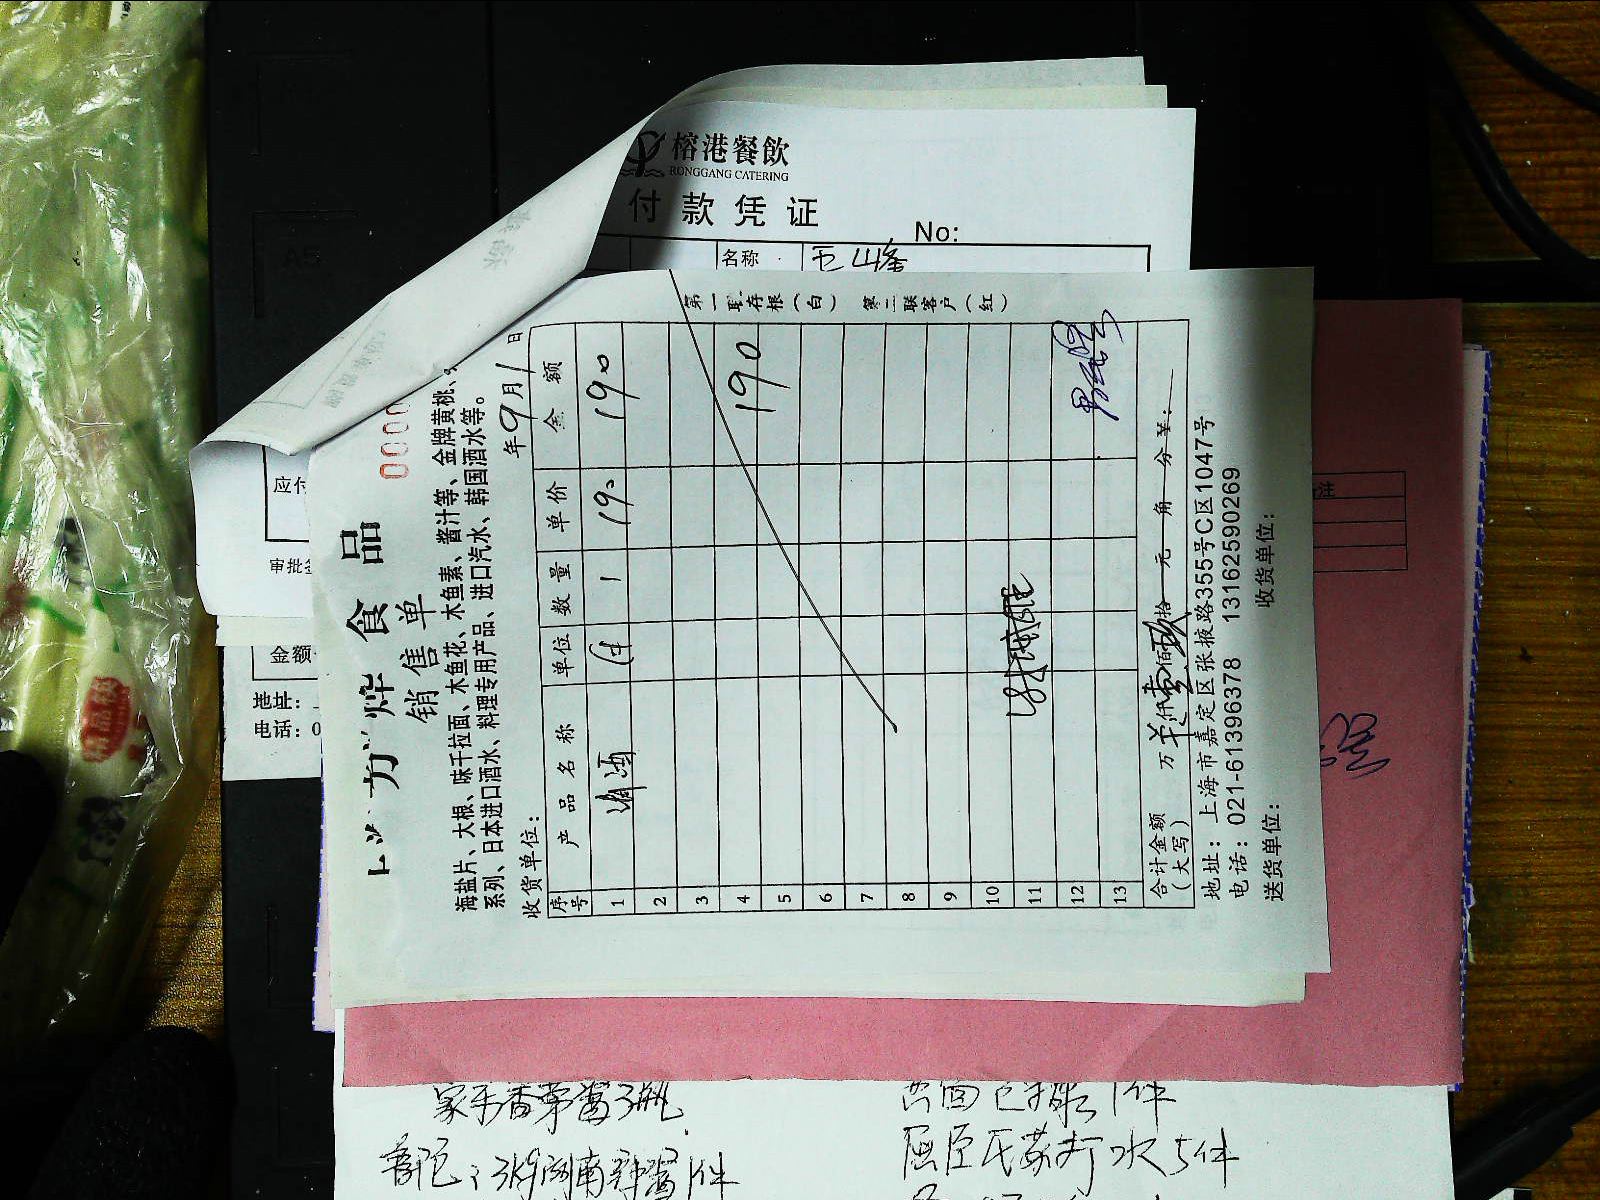 榕港餐飲
RONGGANG CATERING
付款凭证
No:
名称
应付
审批
金额
地址:
电话:0
0000
方烨食品
销售单
海盐片、大根、味千拉面、木鱼花、木鱼素、酱汁等、金牌黄桃、
系列、日本进口酒水、料理专用产品、进口汽水、韩国酒水等。
收货单位: 年9月1日
序号 产品名称 单位 数量 单价 金额
1 清酒 件 1 190 190
2
3
4 190
5
6
7
8
9
10
11
12
13
合计金额(大写) 万 仟 壹佰 玖拾 元 角 分 ¥:
地址:上海市嘉定区张掖路355号C区1047号
电话:021-61396378 13162590269
送货单位: 收货单位:
第一联存根(白) 第二联客户(红)
注
家乐香茅酱3瓶
1件
屈臣氏苏打水5件